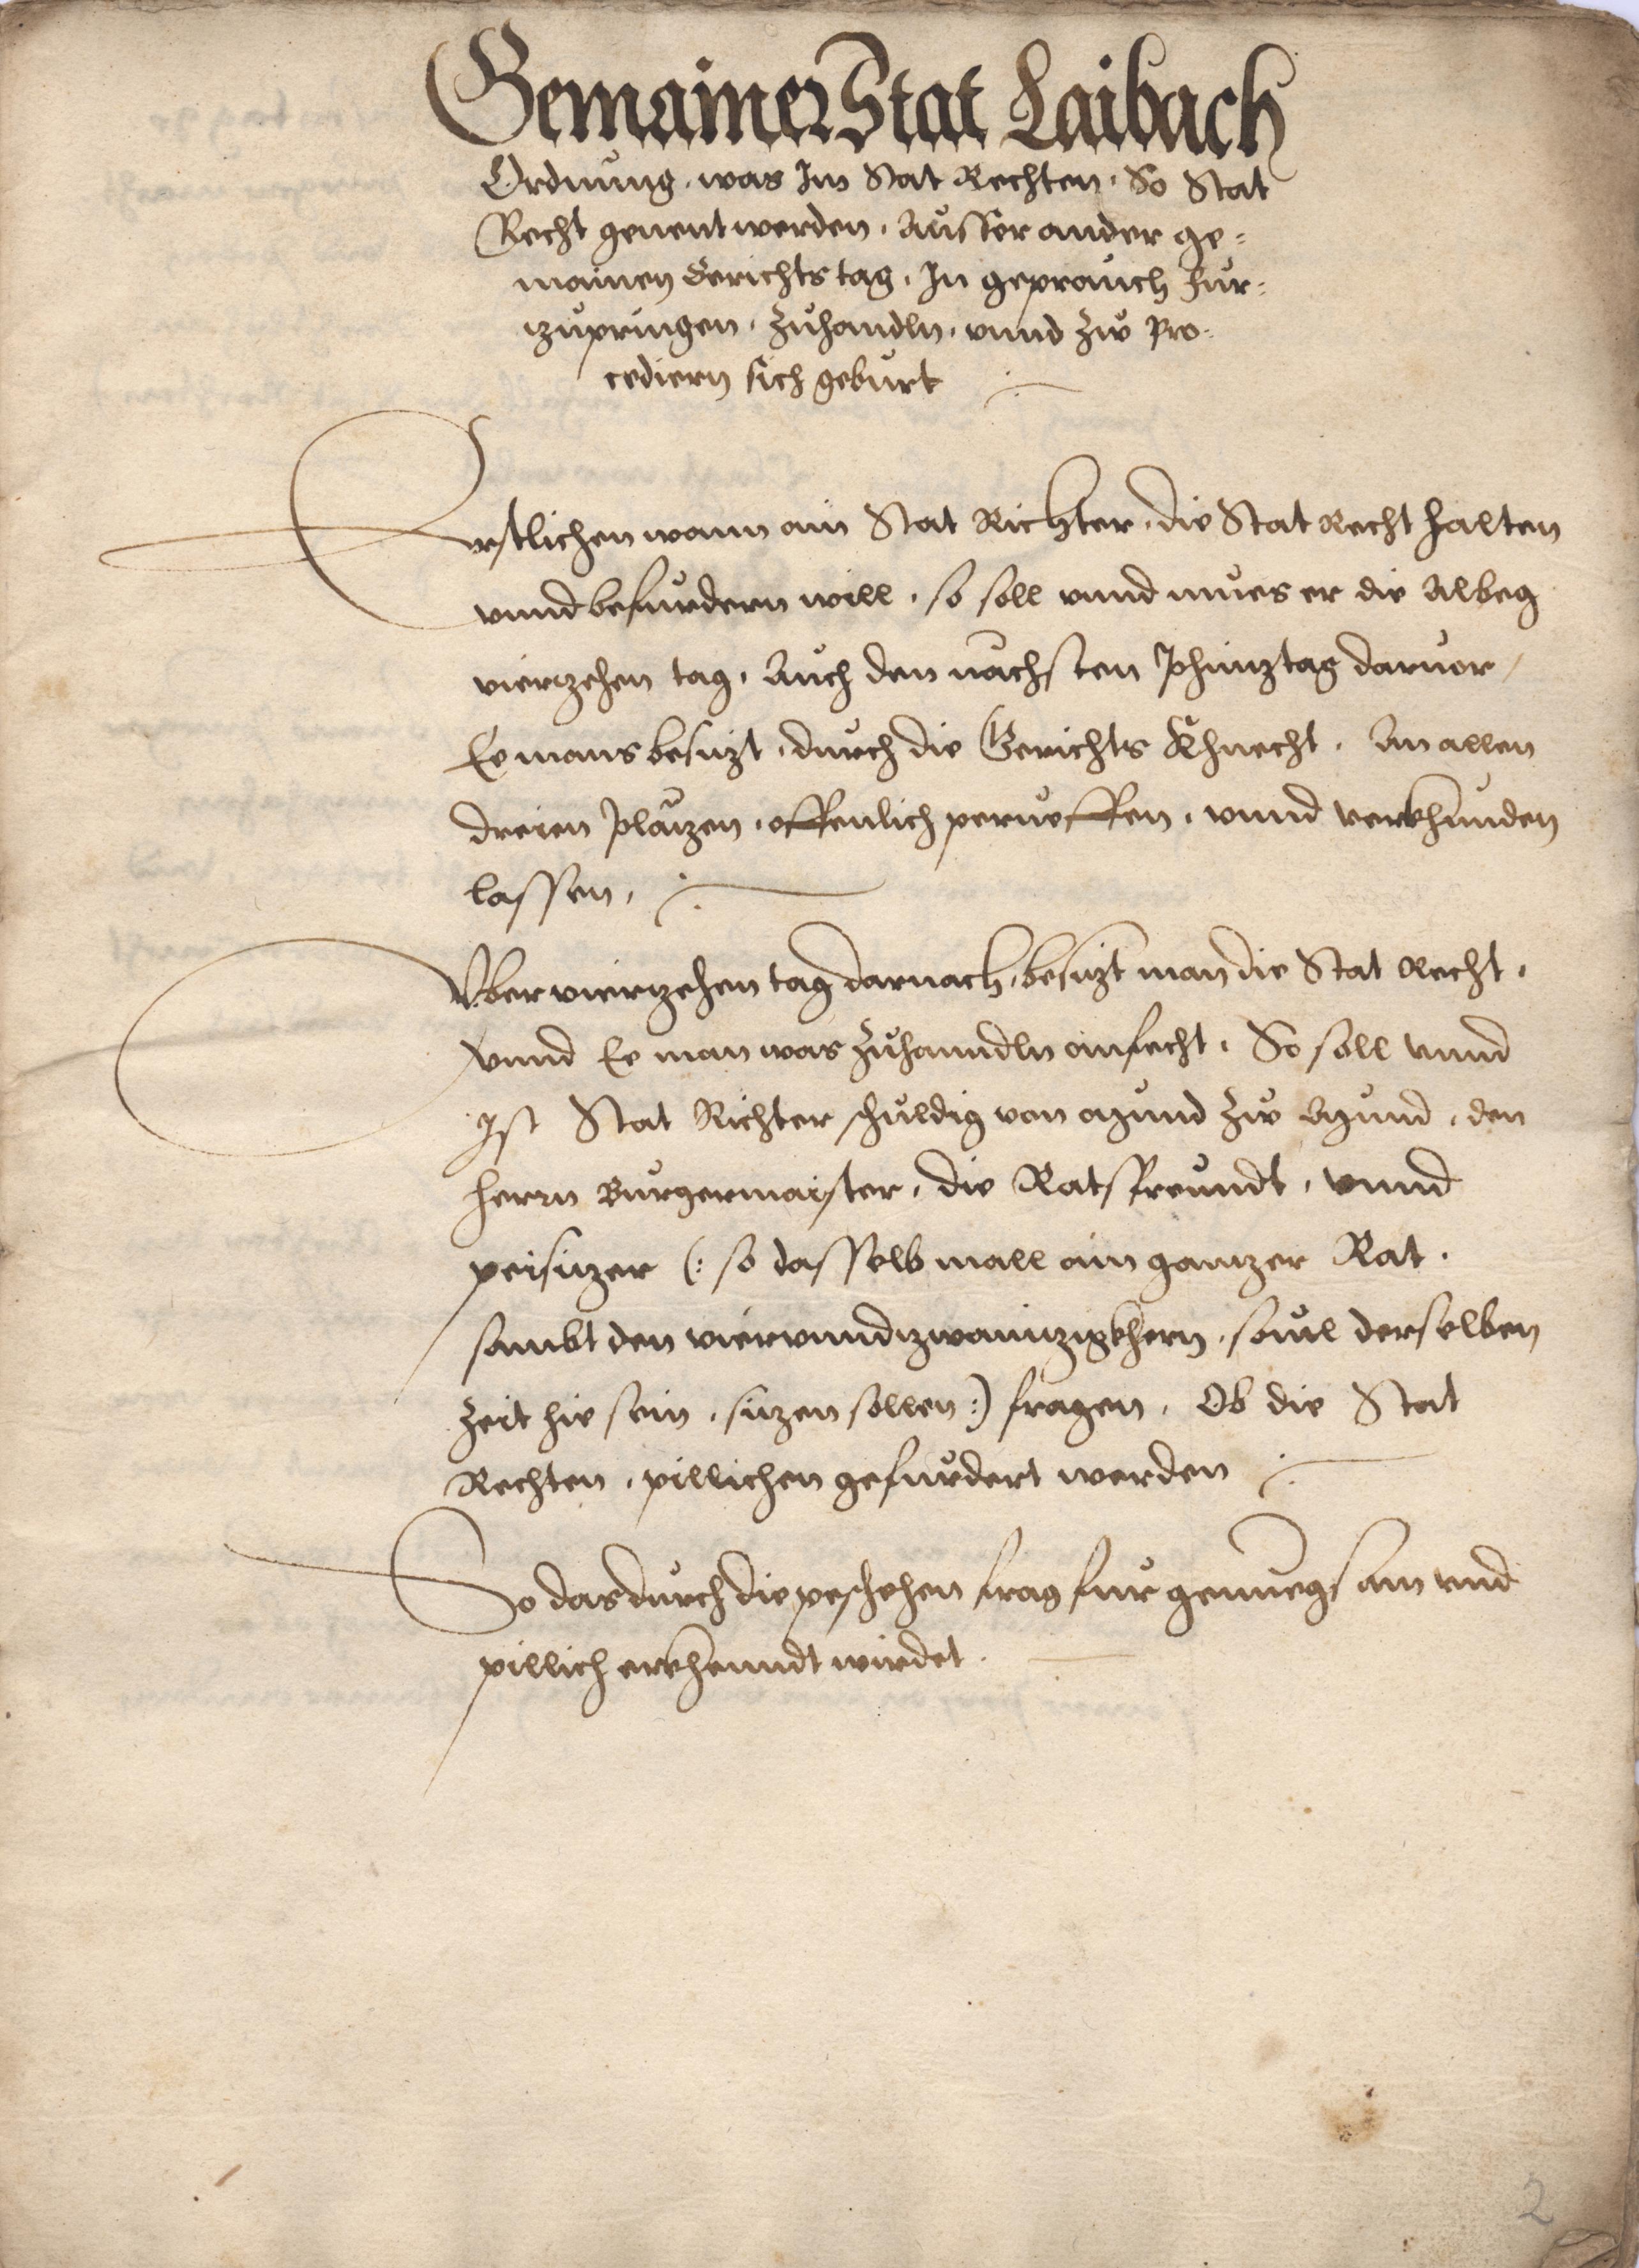 Gemainer Stat Laibach
Ordnung, was Im Stat Rechten, So Stat
Recht genent werden, Ausser ander ge=
mainen Gerichts tag, In geprauch Fur=
zupringen, Zuhandln, vnnd Zw Pro=
cediern sich geburt
Erstlichen wann ain Stat Richter, die Stat Recht halten
vnnd befurdern will, so soll vnnd mues er die Albeg
vierzehen tag, Auch den nachsten Phinztag daruor /
Ee mans besizt, durch die Gerichts Khnecht, An allen
dreien Pläzen, offenlich perueffen, vnnd verkhunden
lassen,
Vber vierzehen tag darnach, besizt man die Stat Recht,
vnnd Ee man was Zuhanndln anfecht, So soll vnnd
Ist Stat Richter schuldig von Mund Zw Mund, den
herrn Burgermaister, die Ratsfreundt, vnnd
peisizer (: so dasselb mall ain ganzer Rat,
sambt den viervnndzwainzigkhern, souil derselben
Zeit hie sein, sizen sollen :) fragen, Ob die Stat
Rechten, pillichen gefurdert werden
So das durch die peschehen frag fur genuegsam vnd
pillich erkhenndt wirdet.
2